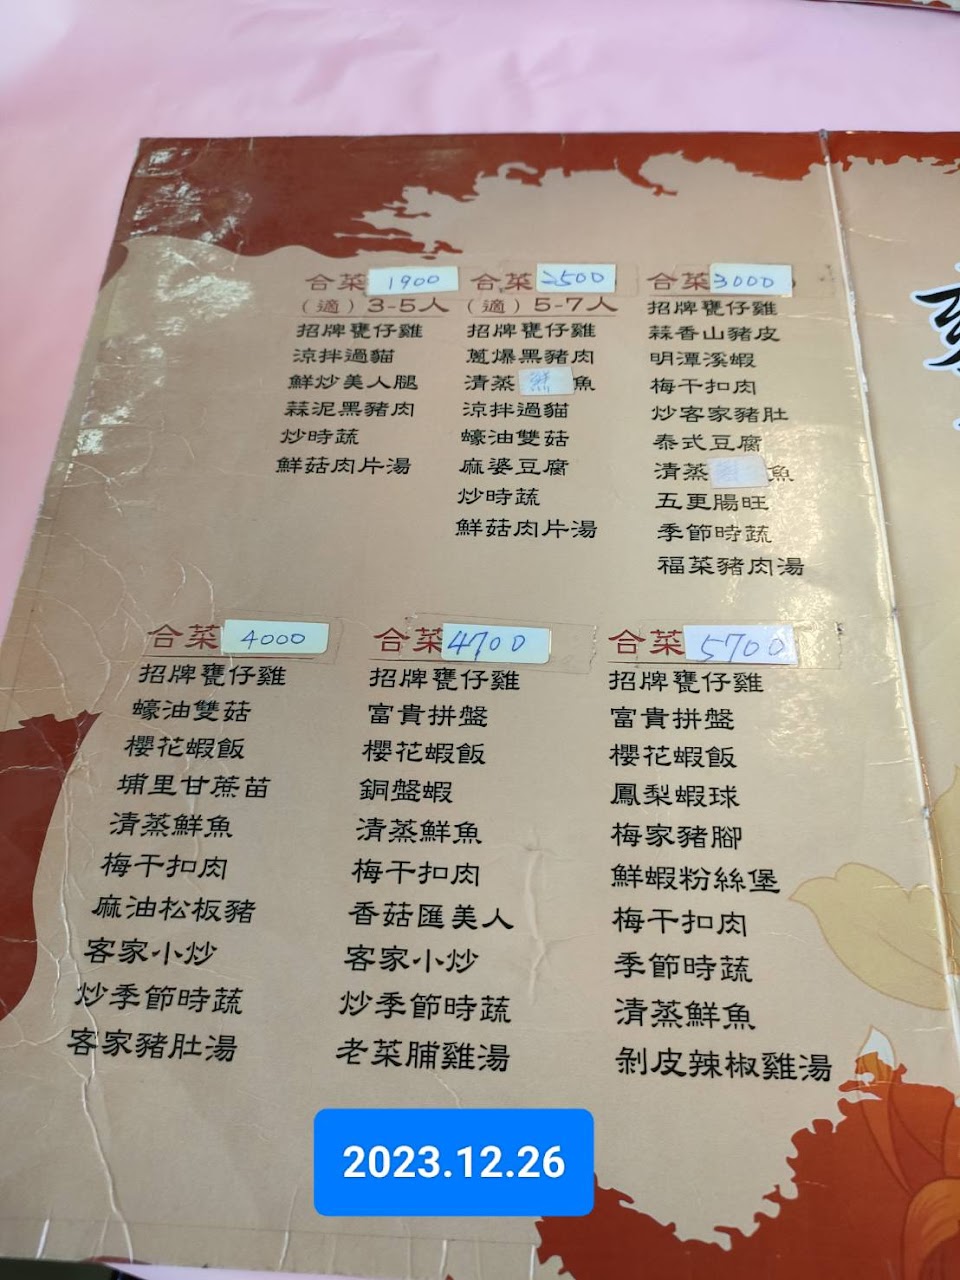 合菜 1900
(適) 3-5人
招牌甕仔雞
涼拌過貓
鮮炒美人腿
蒜泥黑豬肉
炒時蔬
鮮菇肉片湯
合菜 2500
(適) 5-7人
招牌甕仔雞
蔥爆黑豬肉
清蒸鮮魚
涼拌過貓
蠔油雙菇
麻婆豆腐
炒時蔬
鮮菇肉片湯
合菜 3000
招牌甕仔雞
蒜香山豬皮
明潭溪蝦
梅干扣肉
炒客家豬肚
泰式豆腐
清蒸 魚
五更腸旺
季節時蔬
福菜豬肉湯
合菜 4000
招牌甕仔雞
蠔油雙菇
櫻花蝦飯
埔里甘蔗苗
清蒸鮮魚
梅干扣肉
麻油松板豬
客家小炒
炒季節時蔬
客家豬肚湯
合菜 4700
招牌甕仔雞
富貴拼盤
櫻花蝦飯
銅盤蝦
清蒸鮮魚
梅干扣肉
香菇匯美人
客家小炒
炒季節時蔬
老菜脯雞湯
合菜 5700
招牌甕仔雞
富貴拼盤
櫻花蝦飯
鳳梨蝦球
梅家豬腳
鮮蝦粉絲堡
梅干扣肉
季節時蔬
清蒸鮮魚
剝皮辣椒雞湯
2023.12.26